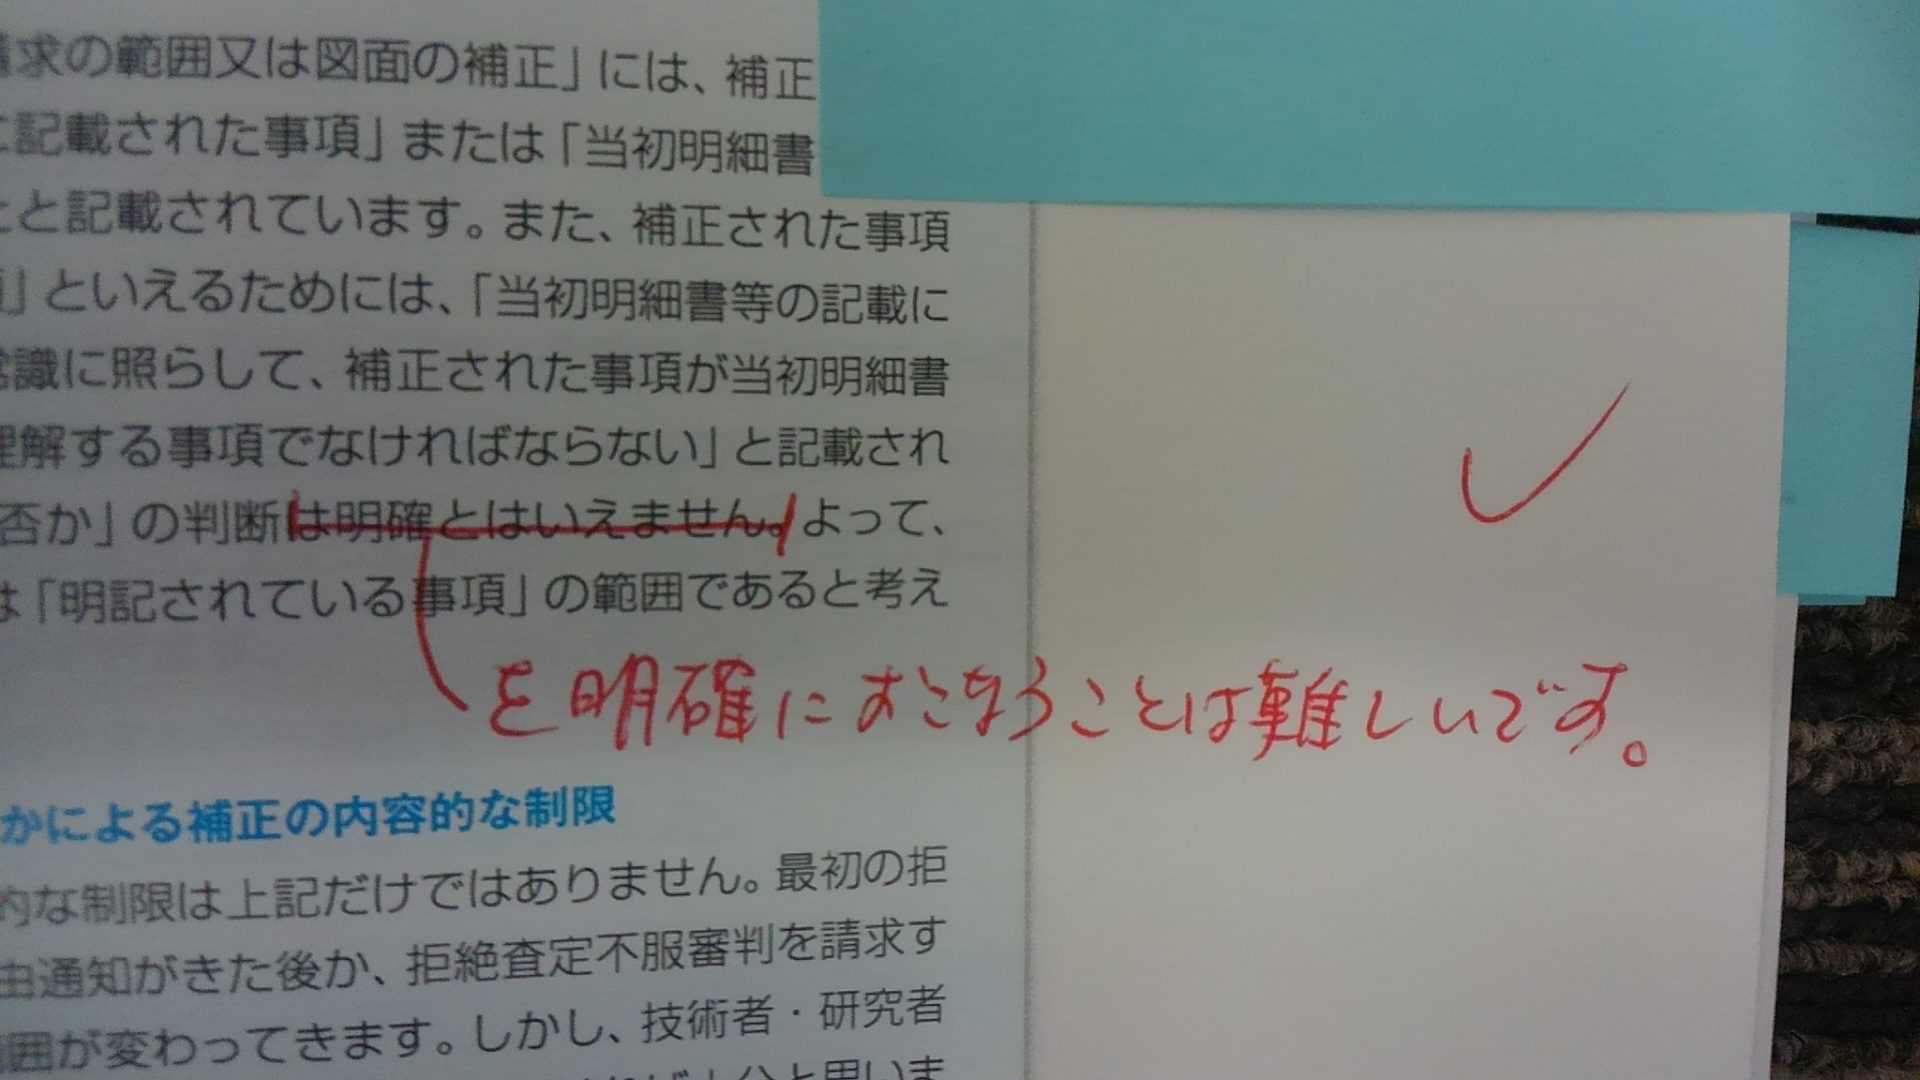 求の範囲又は図面の補正」には、補正
記載された事項」または「当初明細書
と記載されています。また、補正された事項
」といえるためには、「当初明細書等の記載に
識に照らして、補正された事項が当初明細書
理解する事項でなければならない」と記載され
否か」の判断は明確とはいえません。よって、
は「明記されている事項」の範囲であると考え
を明確におこなうことは難しいです。
かによる補正の内容的な制限
的な制限は上記だけではありません。最初の拒
由通知がきた後か、拒絶査定不服審判を請求す
囲が変わってきます。しかし、技術者・研究者
と思いま